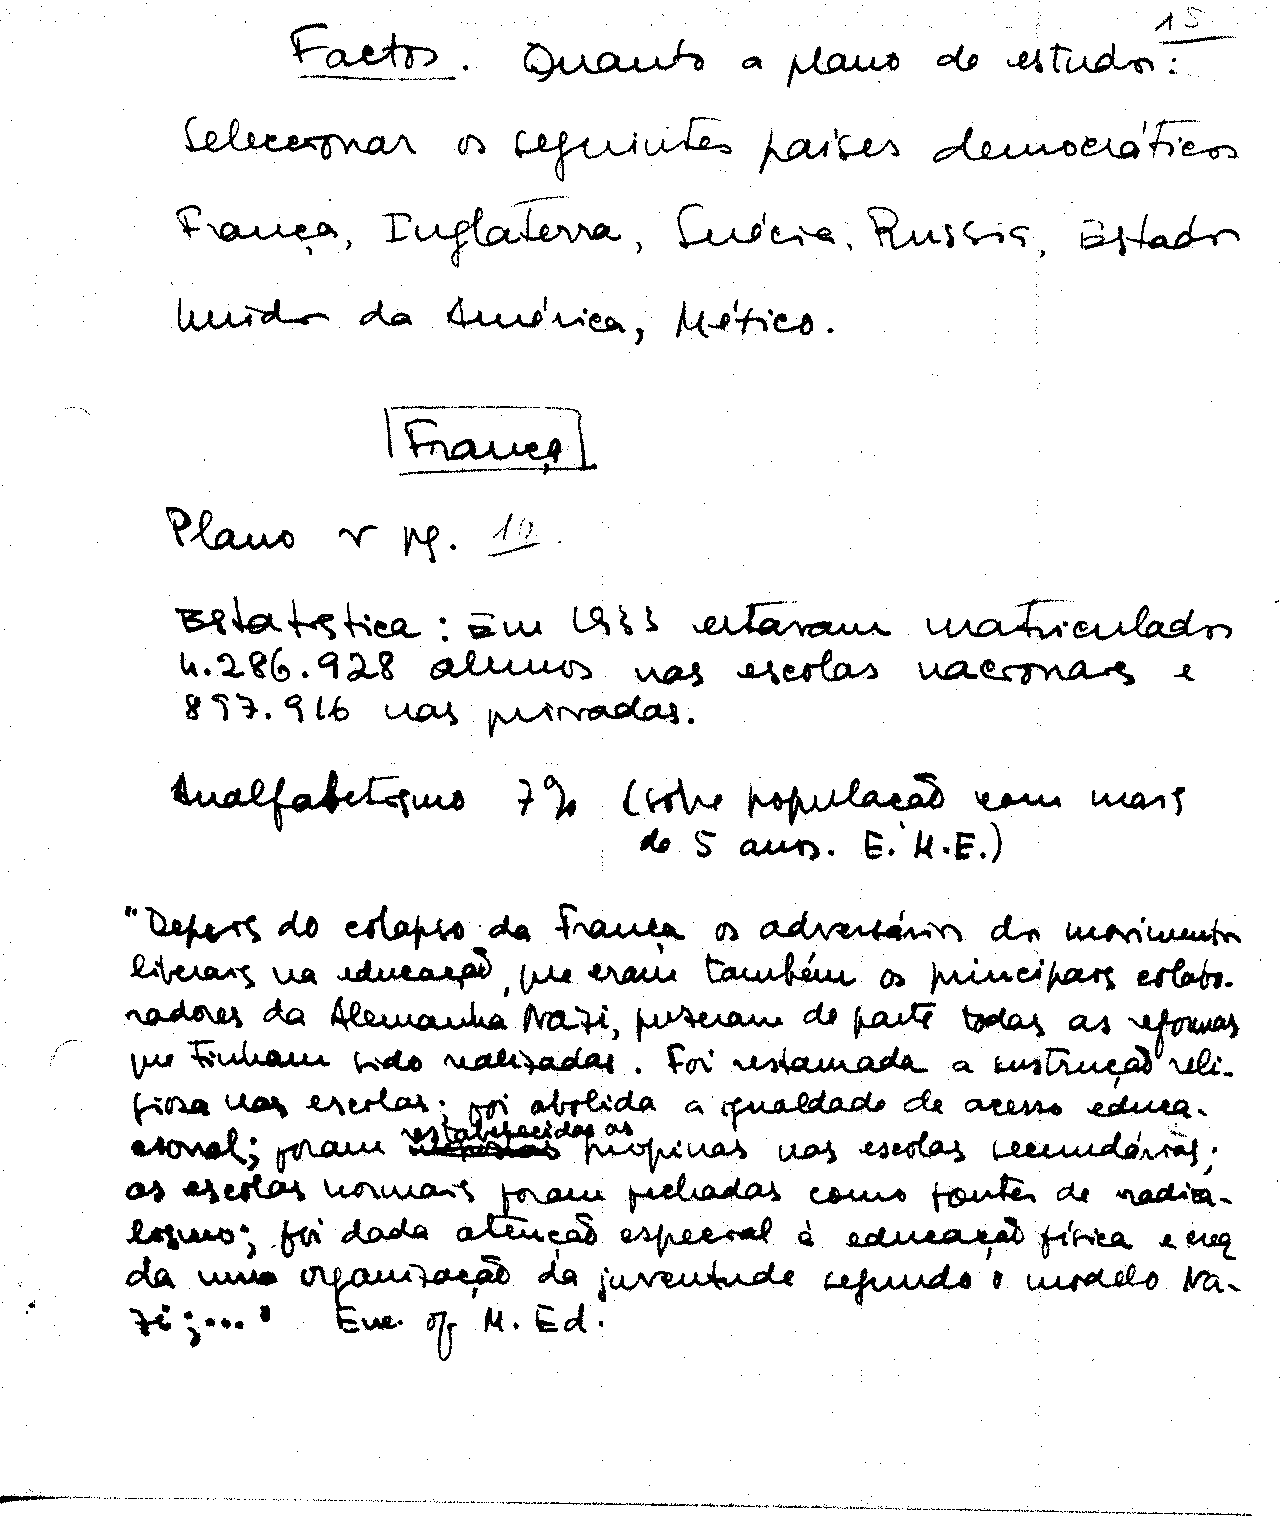 15
Factos. Quanto a plano de estudos:
Seleccionar os seguintes países democráticos
França, Inglaterra, Suécia, Russia, Estados
Unidos da América, México.
França
Plano v pg. 10
Estatistica: Em 1933 estavam matriculados
4.286.928 alunos nas escolas nacionais e
897.916 nas privadas.
Analfabetismo 7% (sobre população com mais
de 5 anos. E.M.E.)
"Depois do colapso da França os adversários dos movimentos
liberais na educação, que eram também os principais colabo-
radores da Alemanha Nazi, puseram de parte todas as reformas
que tinham sido realizadas. Foi restaurada a instrução reli-
giosa nas escolas; foi abolida a igualdade de acesso educa-
cional; foram restabelecidas as propinas nas escolas secundárias;
as escolas normais foram fechadas como fontes de radica-
lismo; foi dada atenção especial à educação física e criada
uma organização da juventude segundo o modelo Na-
zi;..." Enc. of M. Ed.